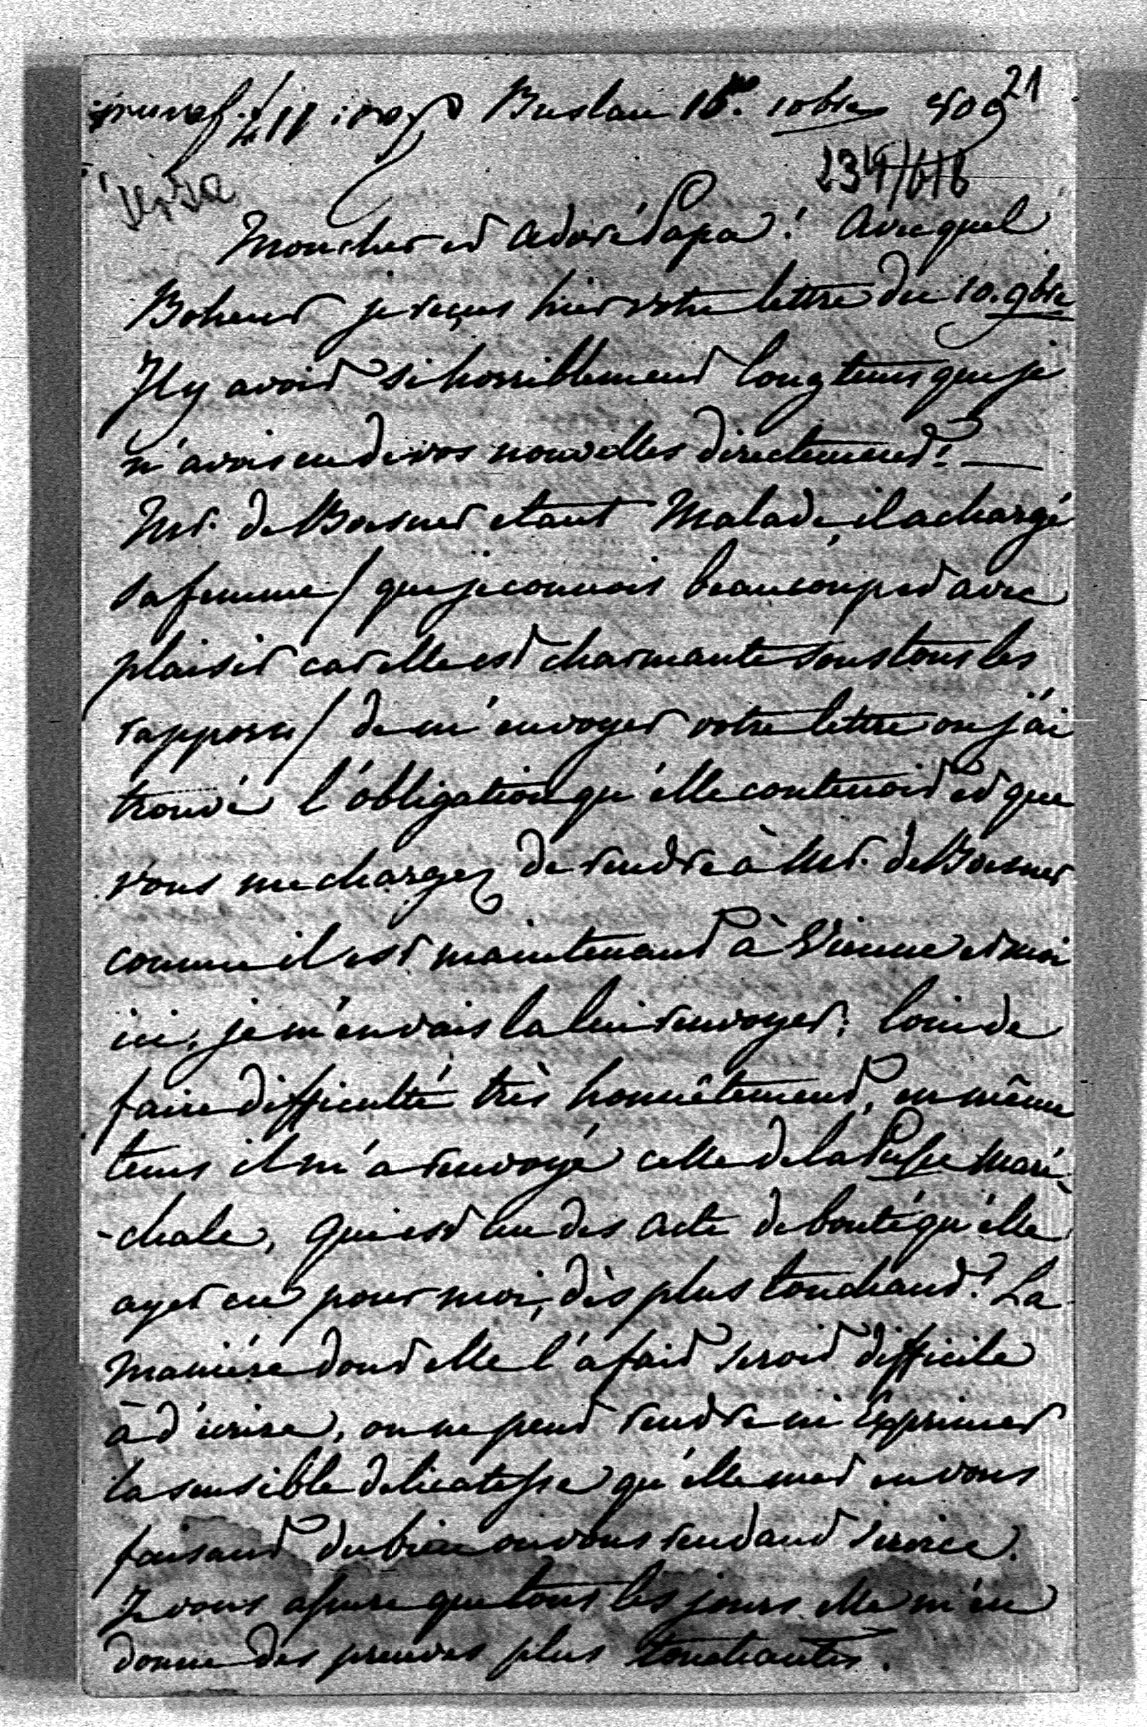 21
Breslau 16. 10bre 809
234/6/8
Mon cher et adoré Papa! Avec quel
Boheur je reçus hier votre lettre du 10. 9bre
Il y avoit si horriblement longtems que je
n'avois eu de vos nouvelles directement! —
Mr. de Boesner etant Malade, il a chargé
sa femme / que je connois beaucoup et avec
plaisir car elle est charmante sous tous les
rapports / de m'envoyer votre lettre ou j'ai
trouvé l'obligation qu'elle contenoit et que
vous me chargez de rendre à Mr. de Boesner
comme il est maintenant à Vienne et moi
ici, je m'en vais la lui renvoyer; loin de
faire difficulté très honnêtement, en même
tems il m'a renvoyé celle de la Psse Maré-
-chale, qui est un des acte de bonté qu'elle
ayet eu pour moi, dès plus touchant! La
manière dont elle l'a fait seroit difficile
à d'ecrire, on ne peut rendre ni Exprimer
la sensible delicatesse qu'elle met en vous
faisant du bien ou vous rendant service.
Je vous assure que tous les jours elle m'en
donne des preuves plus touchantes.